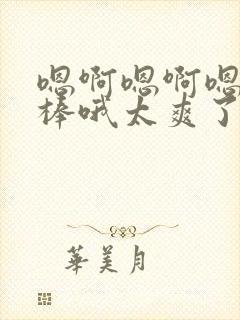 嗯啊嗯啊嗯
棒哦太爽了
華美月